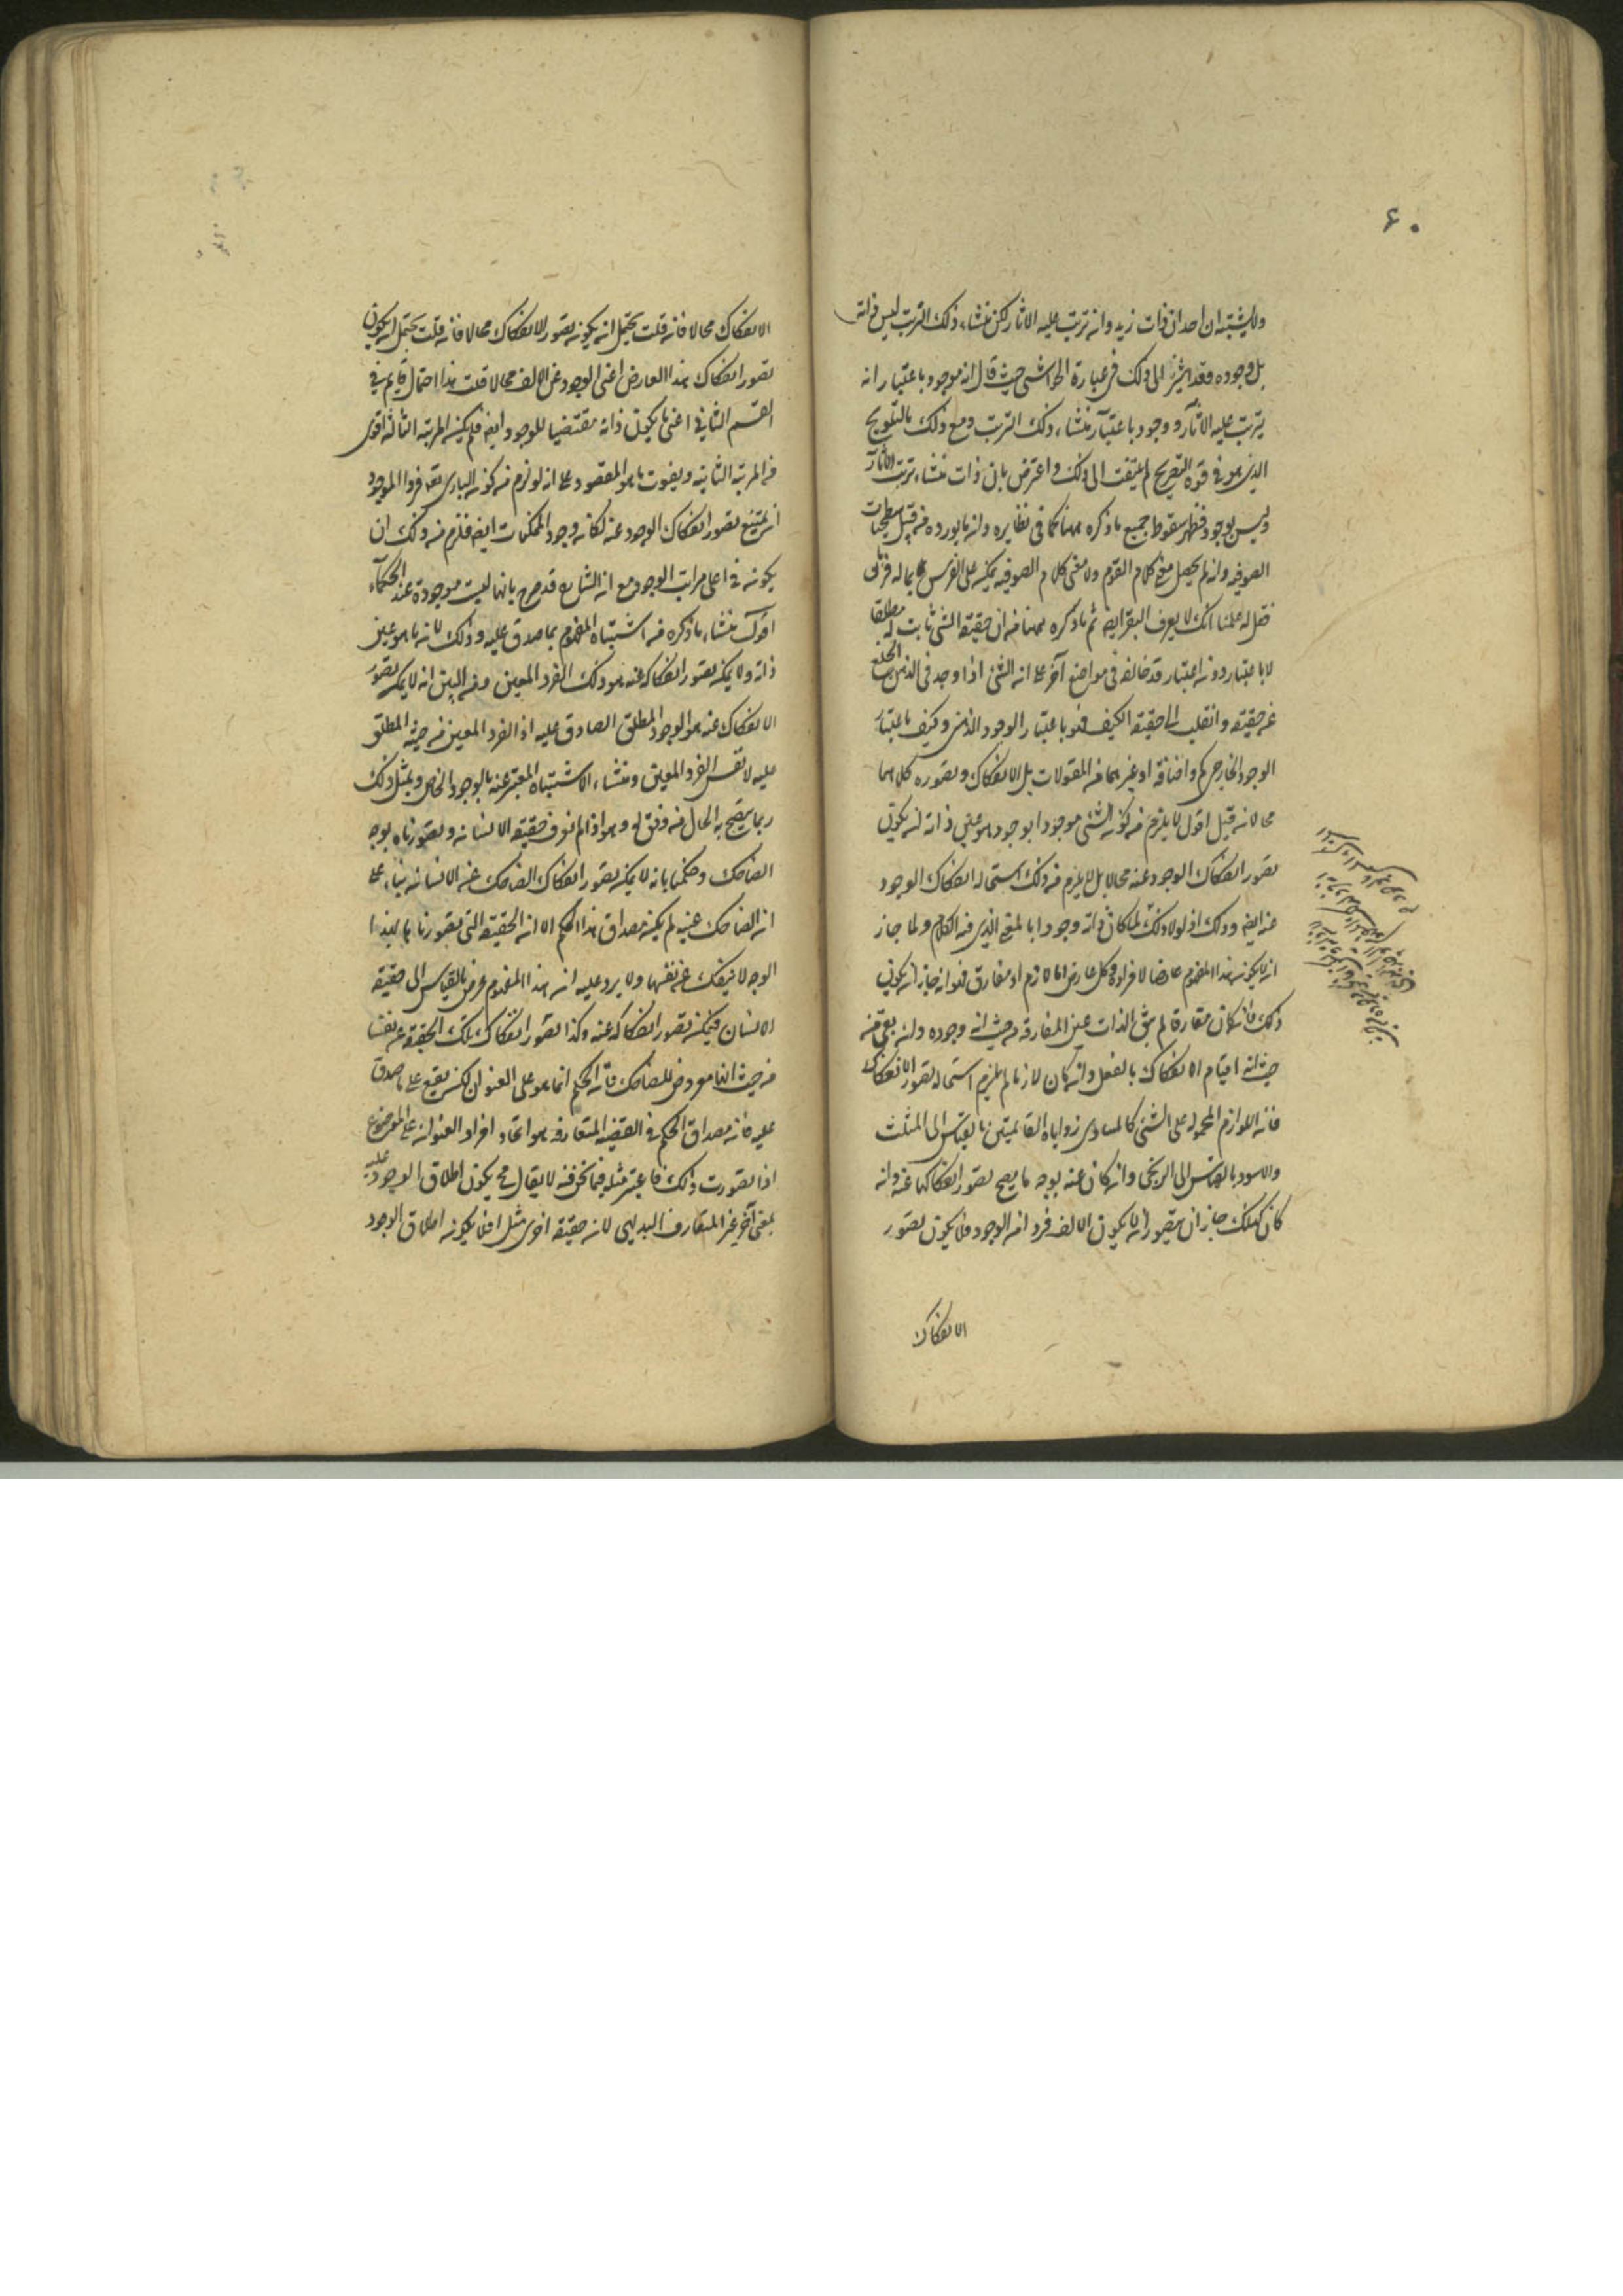 ٦٠
ولا يشتبه ان احدا ان ذات زيد وانه ترتب عليه الاثار لكن منشاء ذلك الترتب ليس ذاته
بل وجوده وقد اشير الى ذلك في عبارة الحواشي حيث قال انه موجود باعتبار انه
يترتب عليه الآثار ووجود باعتبار منشاء ذلك الترتب ومع ذلك بالتلويح
الذي هو في قوة التصريح لم يلتفت الى ذلك واعترض بان ذات منشاء ترتب الآثار
وليس بوجود فظهر سقوط جميع ما ذكره ههنا كما في نظايره وان ما يورده من قبيل شطحيات
الصوفيه وانه لم يحصل معنى كلام القوم ولا معنى كلام الصوفيه
فقل له علمنا انك لا يعرف البقر ايضا ثم ما ذكره ههنا من ان حقيقة الشئ ثابت له مطلقا
لا باعتبار دون اعتبار قد خالفه في مواضع آخر على ان الشئ اذا وجد في الذهن انخلع
عن حقيقته وانقلب الى حقيقة الكيف فهو باعتبار الوجود الذهني وكيف باعتبار
الوجود الخارجي كم واضافة او غيرهما من المقولات بل الانفكاك وتصوره كلاهما
محالان قيل اقول لا يلزم من كون الشئ موجودا بوجود هو عين ذاته ان يكون
تصور انفكاك الوجود عنه محالا بل لا يلزم من ذلك استحالة انفكاك الوجود
عنه ايضا وذلك اذ لولا ذلك لما كان ذاته وجودا بالمعنى الذي فيه الكلام ولما جاز
ان لا يكون هذا المفهوم عارضا لافراده وكل عارض اما لازم او مفارق فلو انه جاز ان يكون
ذلك فان كان مفارقا لم يبق الذات عين المفارقة من حيث انه وجوده وان بقى من
حيث انه اقيام الانفكاك بالفعل وان كان لازما لم يلزم استحالة تصور الانفكاك
فان اللوازم المحمولة على الشئ كالمساوي زواياه القائمتين بالقياس الى المثلث
والاسود بالقياس الى الزنجي وان كان عنه بوجه ما يصح تصور انفكاكها عنه وانه
كان كذلك جاز ان يتصور ان لا يكون الالف فردا من الوجود فلا يكون تصور
الانفكاك
الانفكاك محالا فان قلت يحتمل ان يكون تصور الانفكاك محالا فان قلت يحتمل ان يكون
تصور انفكاك هذا العارض اعنى الوجود عن الالف محالا قلت هذا احتمال قايم في
القسم الثاني اعنى ما يكون ذاته مقتضيا للوجود ايضا فلم يكن المرتبة الثالثة اقوى
من المرتبة الثانية ويفوت ما هو المقصود على انه لو لزم من كونه الباري تعالى فردا للموجود
ان يمتنع تصور انفكاك الوجود عنه لكان وجود الممكنات ايضا فلزم من ذلك ان
يكون في اعلى مراتب الوجود مع ان الشارح قد صرح بانها ليست موجودة عند الحكماء
اقول منشاء ما ذكره من اشتباه المفهوم بما صدق عليه وذلك لان ما هو عين
ذاته ولا يمكن تصور انفكاكه عنه هو ذلك الفرد المعين ومن البين انه لا يمكن تصور
الانفكاك عنه هو الوجود المطلق الصادق عليه اذ الفرد المعين من حيث المطلق
عليه لا نفس الفرد المعين ومنشاء الاشتباه المعتبر عنه بالوجود الخاص وبمثل ذلك
ربما يتضح به الحال من وفق له وهو اذا لم نعرف حقيقة الانسان وتصورناه بوجه
الضاحك وحكمنا بانه لا يمكن تصور انفكاك الضاحك عن الانسان بناء على
ان الضاحك عينه لم يكن مصداق هذا الحكم الا ان الحقيقة التي تصورناها بهذا
الوجه لا ينفك عن نفسها ولا يرد عليه ان هذا المفهوم عرضي بالقياس الى حقيقة
الانسان فيمكن تصور انفكاكه عنه وكذا تصور انفكاك تلك الحقيقة عن نفسها
من حيث انها معروض للضاحك فان الحكم انما هو على العنوان لكن يقع على ما صدق
عليه فان مصداق الحكم في القضية المتعارفة هو اتحاد افراد العنوان على الموضوع
اذا تصورت ذلك فاعتبر مثله فيما نحن فيه لا يقال فح يكون اطلاق الوجود عليه
بمعنى آخر غير المتعارف البديهي لانه حقيقة اخرى مثل افلا يكون اطلاق الوجود